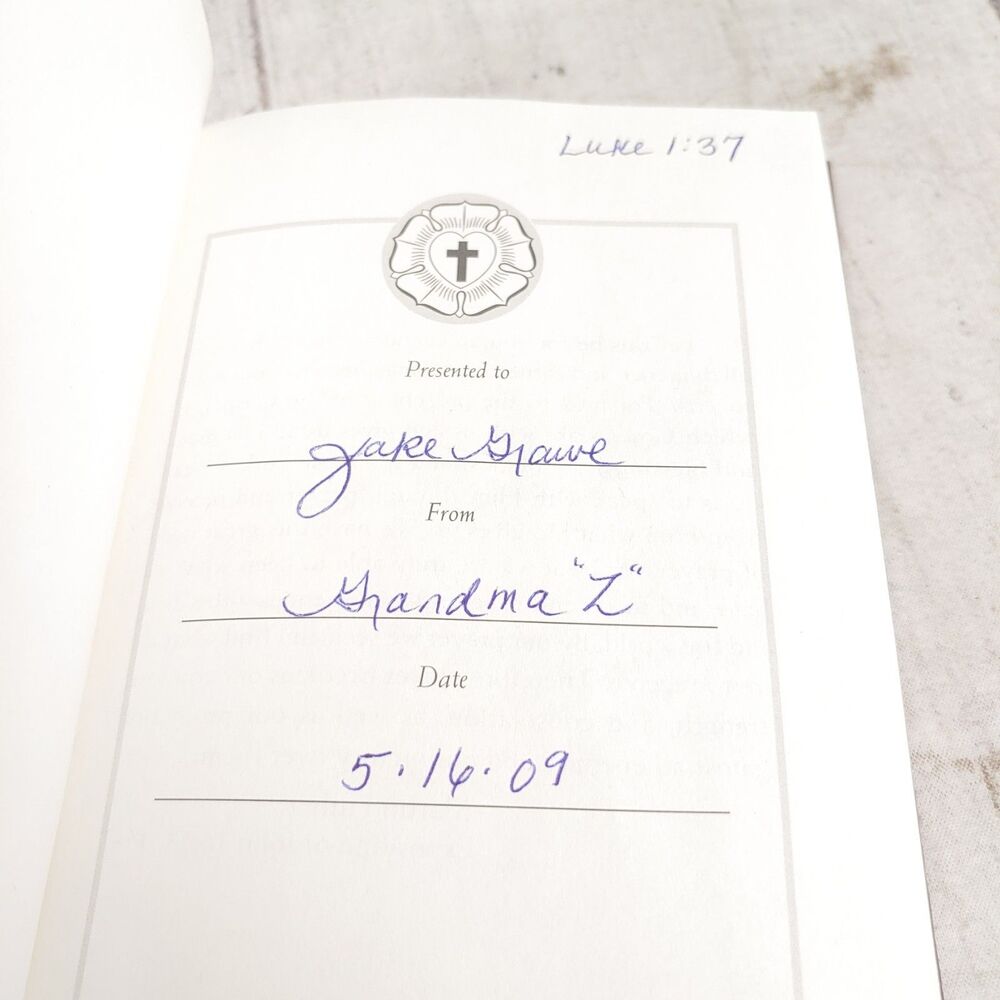 Luke 1:37
Presented to
Jake Grawe
From
Grandma "L"
Date
5.16.09